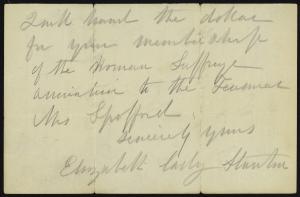 I will hand the dollar
for your membership
of the Woman Suffrage
association to the Treasurer
Mrs Spofford.
Sincerely yours
Elizabeth Cady Stanton